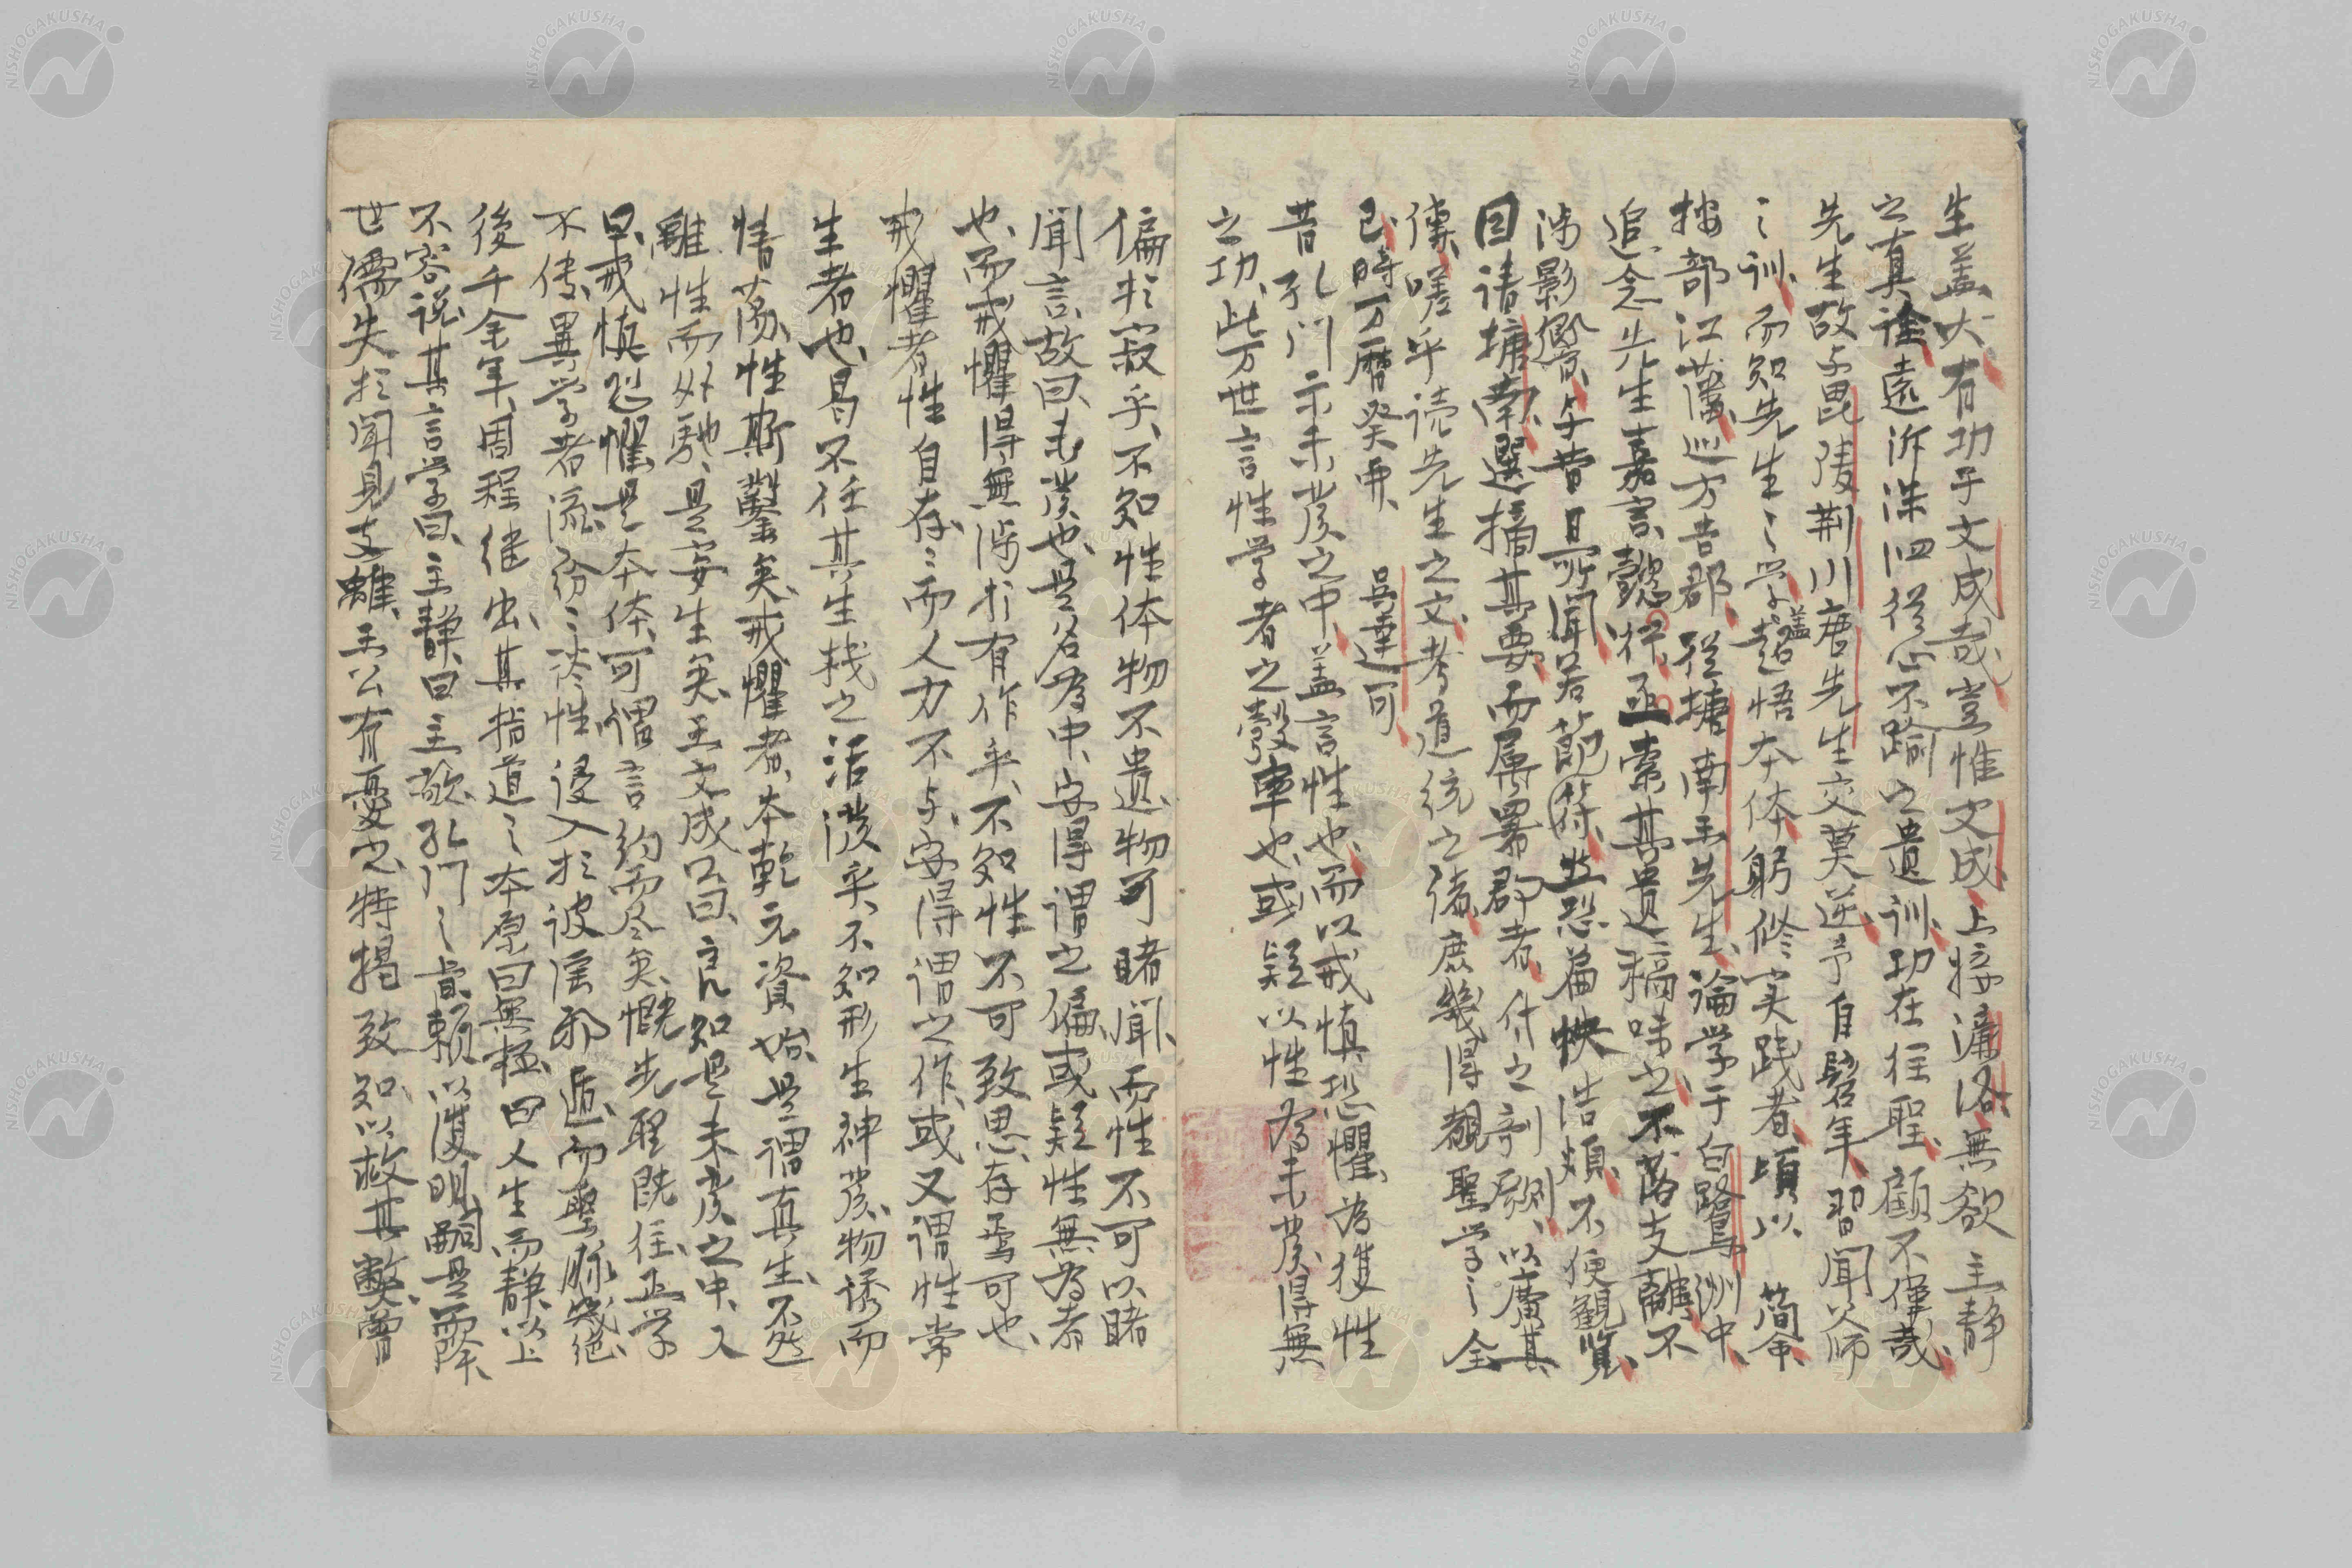 生、盖大有功于文成哉、豈惟文成、上接濂洛無欲主静
之真詮、遠泝洙泗従心不踰之遺訓、功在往聖、顧不偉哉、
先生故与毘陵荆川唐先生交莫逆、予自髫年、習聞父師
〻訓、而知先生〻学、盖超悟本体、躬修実践者、頃以 簡命、
按部江藩、巡方吉郡、従搪南王先生、論学于白鷺洲中、
追念先生嘉言懿行、亟索其遺稿味之、不落支離、不
涉影響、与昔日所聞若節符、並恐篇帙浩煩、不便観覧、
因请搪南、選摘其要、而属署郡者、付之剞劂、以廣其
傳、嗟乎読先生之文、考道統之緒、庶幾得覩聖学〻全
已、時万曆癸冉 呉達可
昔孔門示未发之中、盖言性也、而以戒慎恐懼、為復性
之功、此万世言性学者之彀率也、或疑以性為未发、得無
偏於寂乎、不知性体物不遺、物可睹聞、而性不可以睹
聞言、故曰未发也、是名為中、安得謂之偏、或疑性無為者
也、而戒懼得無涉於有作乎、不知性不可致思、存焉可也、
戒懼者性自存、〻而人力不与、安得謂之作、或又謂性常
生者也、曷不任其生栈之活潑乎、不知形生神发、物誘而
情蕩、性斯鑿矣、戒懼者、本乾元資始、是謂真生、不然
離性而外馳、是妄生矣、王文成公曰、良知是未发之中、又
曰、戒慎恐懼是本体、可謂言約而尽矣、慨先聖既往、正学
不傳、異学者流、紛〻談性、浸入於詖淫邪遁、而聖脈幾絶、
後千余年、周程継出、其指道〻本原曰無極、曰人生而静以上
不容説、其言学曰主静、曰主敬、孔門〻旨、頼以復明、嗣是而降、
世儒失於聞見支離、王公有憂之、特揭致知、以救其弊、曽